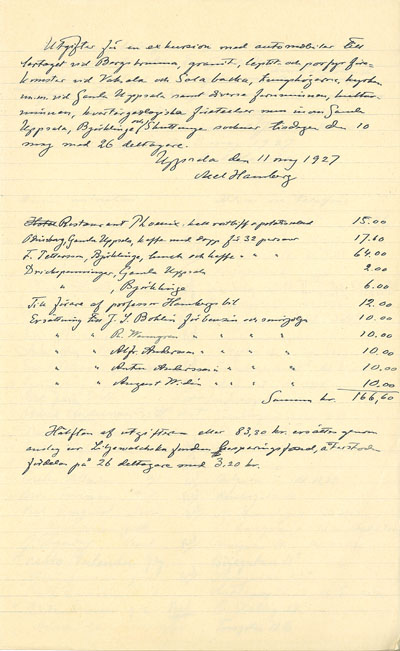 Utgifter för en exkursion med automobiler till
vid Bergsbrunna, granit-, leptit- och porfyr före-
komster vid Vaksala och Sala backe, kungshögarne, kyrkan
m.m. vid Gamla Uppsala samt diverse fornminnen, kultur-
minnen, kvartärgeologiska företeelser m.m. inom Gamla
Uppsala, Björklinge och Skuttunge socknar tisdagen den 10
maj med 26 deltagare.
Uppsala den 11 maj 1927
Axel Hamberg
Restaurant Phoenix: kall rostbiff o potatissallad 15.00
Gamla Uppsala, kaffe med dopp för 32 personer 17.60
F. Pettersson, Björklinge, lunch och kaffe " " 64.00
Drickspenningar, Gamla Uppsala 2.00
" , Björklinge 6.00
Till förare af professor Hambergs bil 12.00
Ersättning till J. S. Bohlin för bensin och smörjolja 10.00
" " R. " " " 10.00
" " Alfr. Andersson " " " " 10.00
" " Anton Andersson " " " " 10.00
" " August " " " 10.00
Summa kr. 166,60
Hälften af utgifterna eller 83,30 kr. ersättes genom
anslag ur Liljewalchska fonden, återstoden
fördelas på 26 deltagare med 3,20 kr.